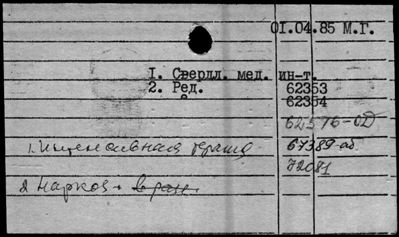 01.04.85 М.Г.
1. Свердл. мед. ин-т.
2. Ред. 62353
62354
62376-ОД
1. Интенсивная терапия 67389-об.
72081
2 Наркоз